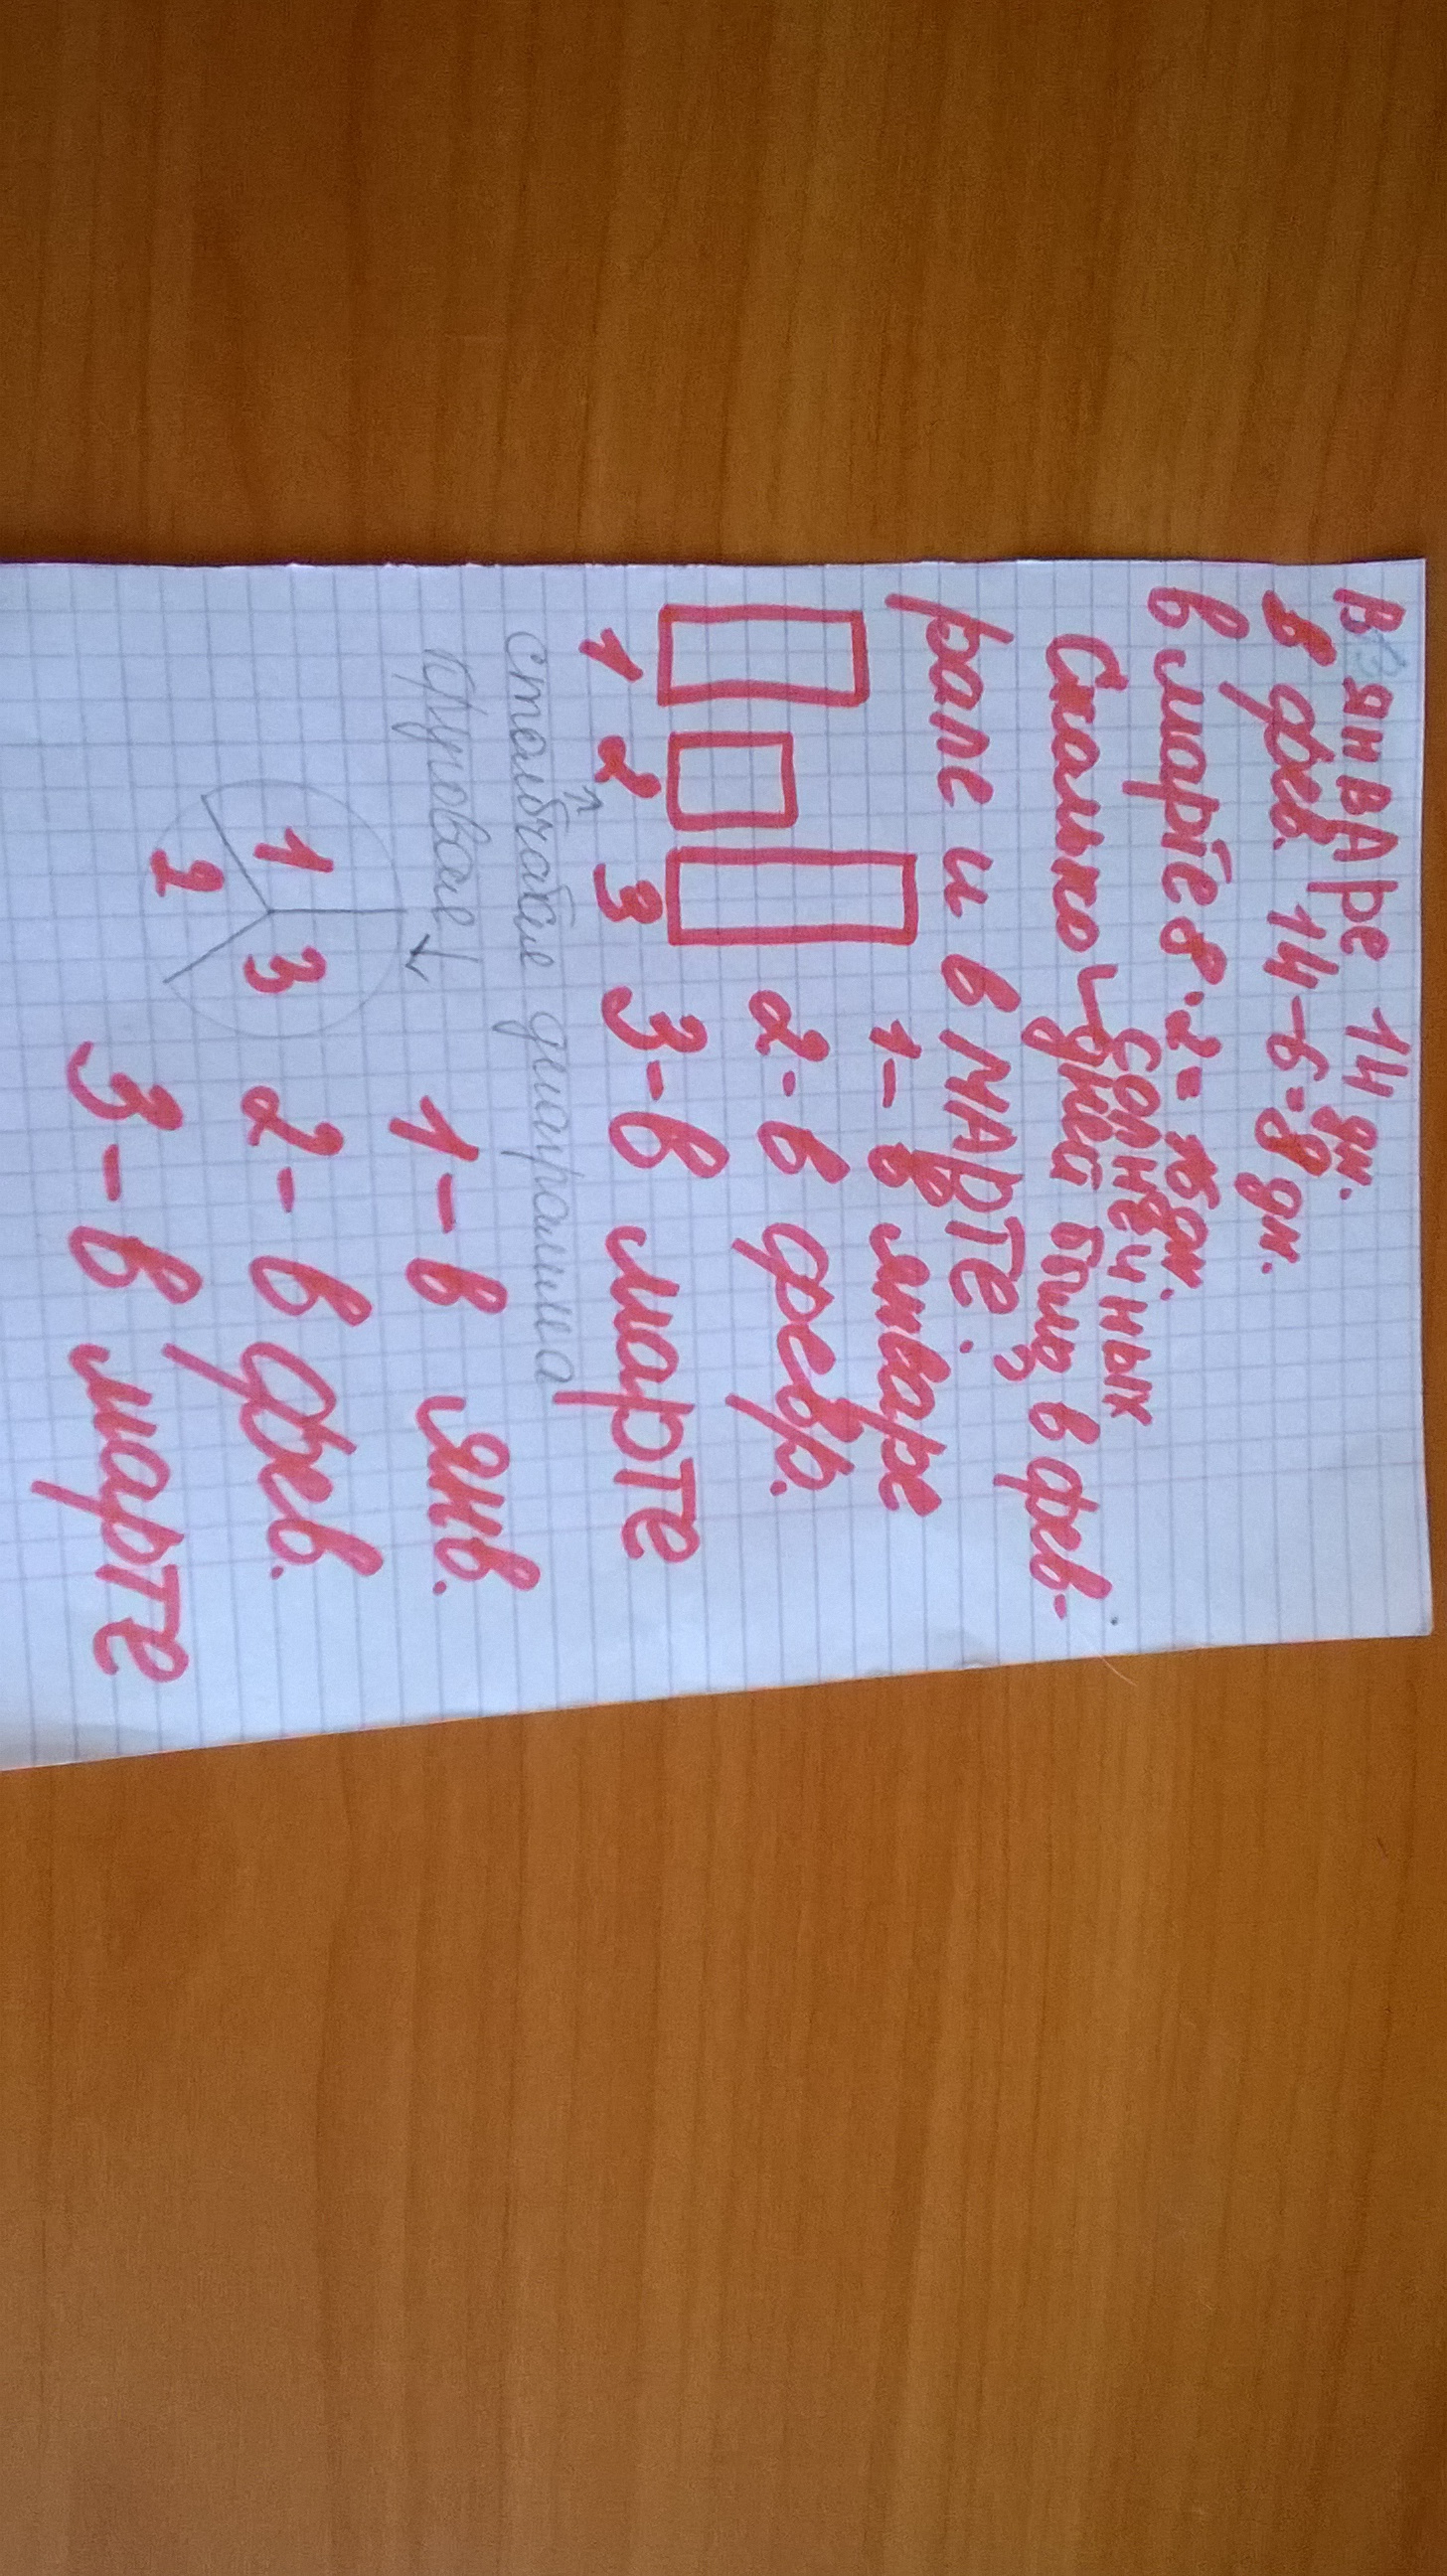 В янвАре 14 дн.
в фев. 14-6=8 дн.
в марте 8·2= 16 дн.
солнечных
Сколько дней было в фев-
рале и в мАрте?
1- в январе
2- в февр.
1 2 3 3-в марте
столбчатые диаграмма
круговые ↓
1-в янв.
1 3 2- в фев.
2 3-в марте